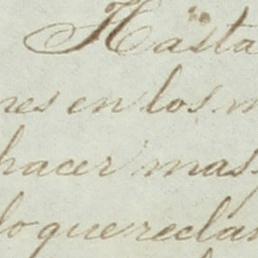 Hasta
nes en los m
hacer mas
lo que reclam